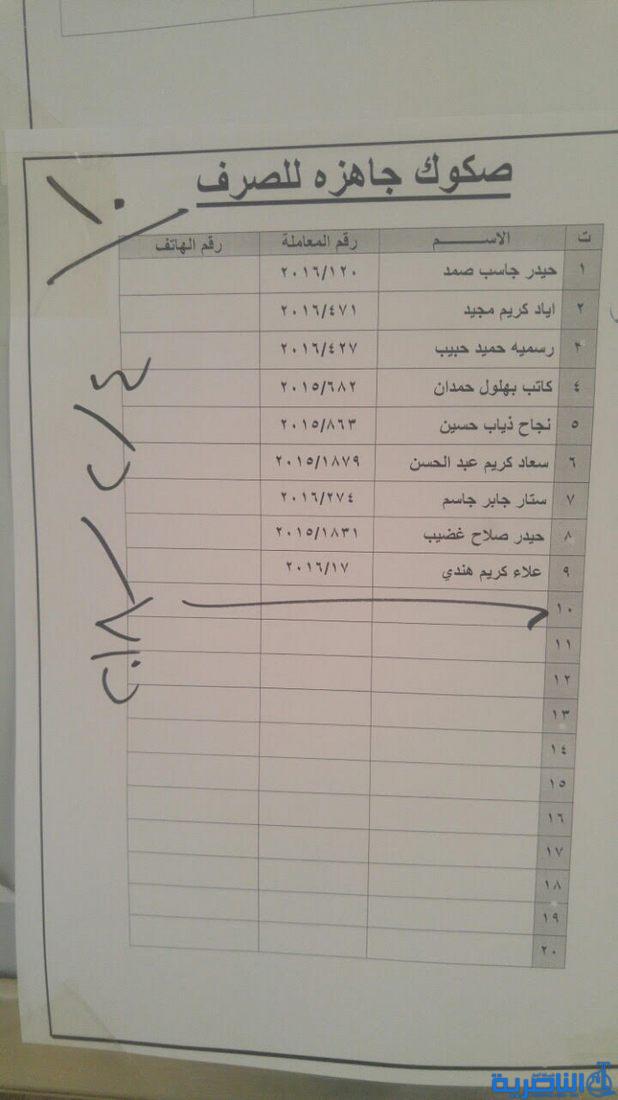 صكوك جاهزه للصرف
ت الاســــــم رقم المعاملة رقم الهاتف
١ حيدر جاسب صمد ٢٠١٦/١٢٠
٢ اياد كريم مجيد ٢٠١٦/٤٧١
٣ رسميه حميد حبيب ٢٠١٦/٤٢٧
٤ كاتب بهلول حمدان ٢٠١٥/٦٨٢
٥ نجاح ذياب حسين ٢٠١٥/٨٦٣
٦ سعاد كريم عبد الحسن ٢٠١٥/١٨٧٩
٧ ستار جابر جاسم ٢٠١٦/٢٧٤
٨ حيدر صلاح غضيب ٢٠١٥/١٨٣١
٩ علاء كريم هندي ٢٠١٦/١٧
١٠
١١
١٢
١٣
١٤
١٥
١٦
١٧
١٨
١٩
٢٠
الناصرية